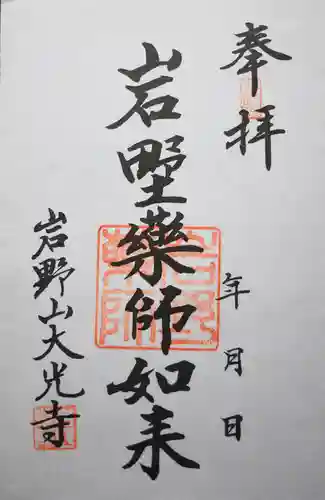 奉拝
年月日
岩野藥師如来
岩野山大光寺